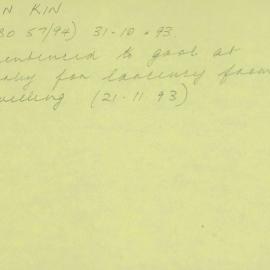 N KIN
30 57/94) 31-10.93.
entenced to gaol at
for larceny from
elling (21-11 93)